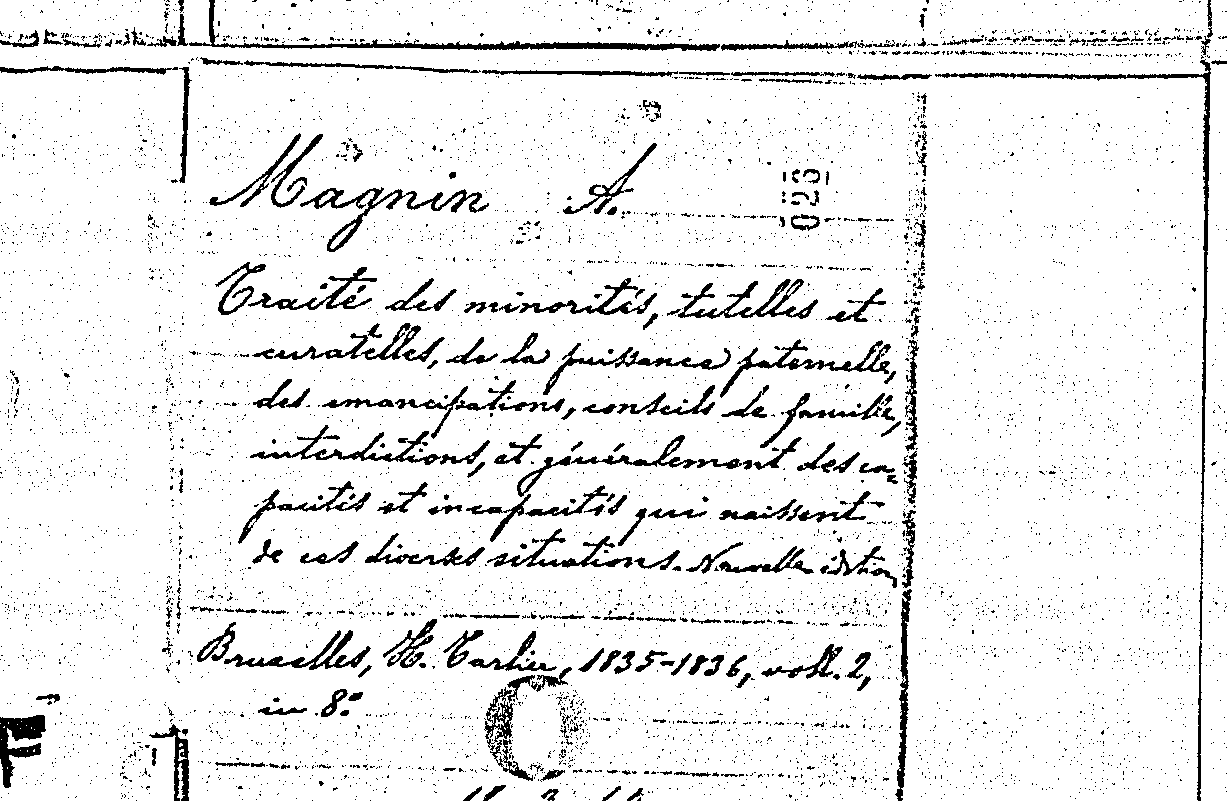 Magnin A.
Traité des minorités, tutelles et
curatelles, de la puissance paternelle,
des emancipations, conseils de famille,
interdictions, et généralement des ca=
pacités et incapacités qui naissent
de ces diverses situations. Nouvelle edition,
Bruxelles, H. Tarlier, 1835-1836, voll. 2,
in 8.°
F